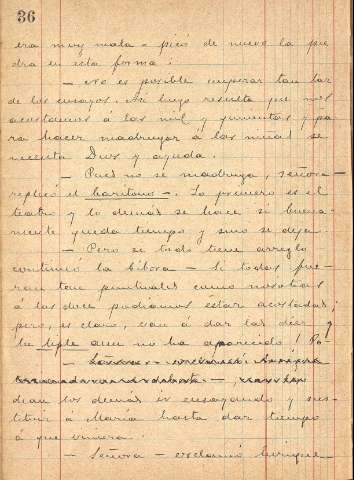 36
era muy mala - picó de nuevo la pie
dra en esta forma:
— No es posible empezar tan tar
de los ensayos. Asi luego resulta que nos
acostamos á las mil y quinientas y pa
ra hacer madrugar á las niñas se
necesita Dios y ayuda.
— Pues no se madruga, señora —
replicó el baritono —. Lo primero es el
teatro y lo demás se hace si buena-
mente queda tiempo y sino se deja.
— Pero si todo tiene arreglo
continuó la víbora — Si todos fue-
ran tan puntuales como nosotras
á las doce podiamos estar acostadas;
pero, es claro, van á dar las diez y
la tiple aun no ha aparecido! Po-
dian los demás ir ensayando y sus-
tituir á María hasta dar tiempo
á que viniera.
— Señora — exclamó Enrique —